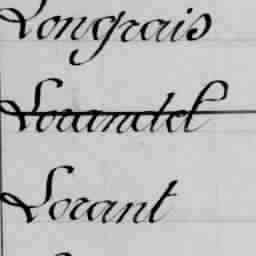 Longrais
Lourmdel
Lorant